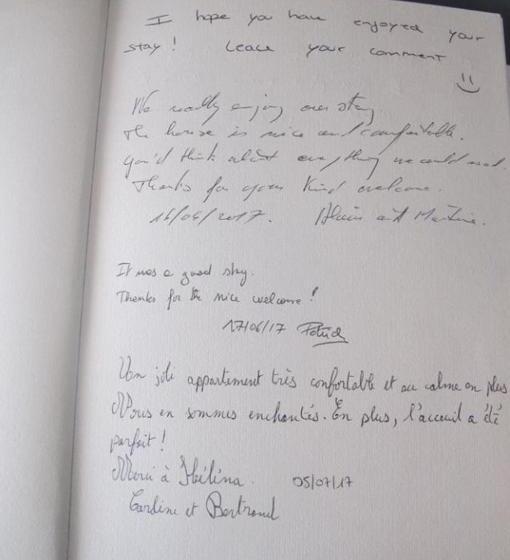 I hope you have enjoyed your
stay! Leave your comment
We really enjoy our stay
the house is nice and comfortable.
you'd think about everything we could need.
Thanks for your kind welcome.
16/06/2017. Alain and Martine.
It was a good stay.
Thanks for the nice welcome!
17/06/17 Patrick
Un joli appartement très confortable et au calme en plus
Nous en sommes enchantés. En plus, l'acceuil a été
parfait!
Merci à Héléna. 05/07/17
et Bertrand